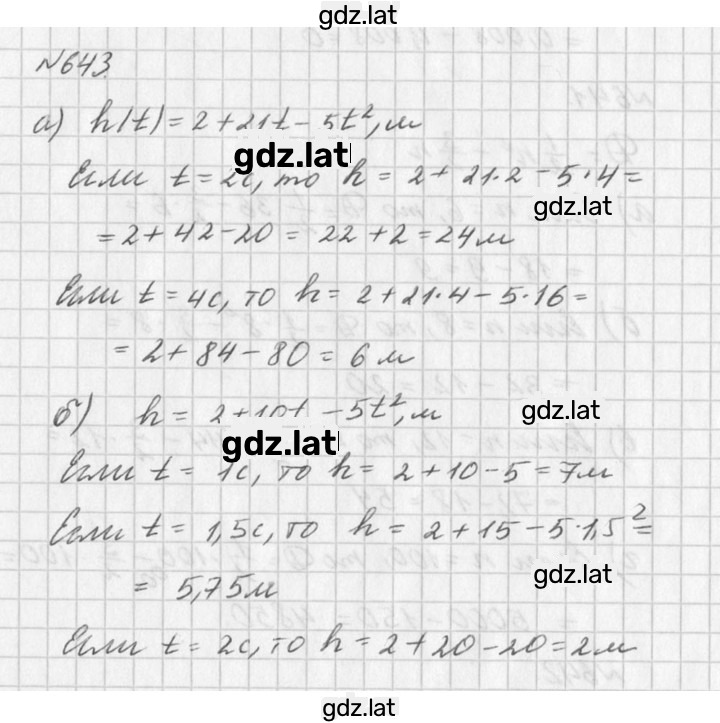 gdz.lat
№643.
а) h(t) = 2 + 21t - 5t², м
gdz.lat
Если t = 2с, то h = 2 + 21·2 - 5·4 =
gdz.lat
= 2 + 42 - 20 = 22 + 2 = 24 м
Если t = 4с, то h = 2 + 21·4 - 5·16 =
= 2 + 84 - 80 = 6 м
б) h = 2 + 10t - 5t², м
gdz.lat
gdz.lat
Если t = 1с, то h = 2 + 10 - 5 = 7м
Если t = 1,5с, то h = 2 + 15 - 5·1,5² =
= 5,75м
gdz.lat
Если t = 2с, то h = 2 + 20 - 20 = 2м
gdz.lat